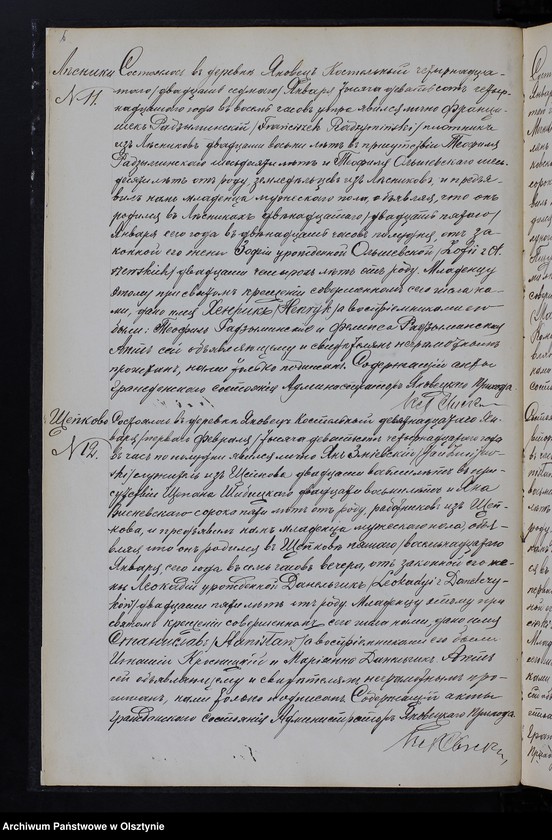 Лѣсники Состоялось въ деревнѣ Яновецъ Костельный четырнадца-
№ 11. того /двадцать седьмого/ Января тысяча девятьсотъ четыр-
надцатого года въ восемь часовъ утра явился лично Франци-
шекъ Радзыминскій /Franciszek Radzymiński/ плотникъ
изъ Лѣсниковъ двадцати восьми лѣтъ въ присутствіи Теофиля
Радзыминского шестидесяти лѣтъ и Теофиля Ольшевского шес-
десяти лѣтъ отъ роду, земледѣльцевъ изъ Лѣсниковъ, и предъя-
вилъ намъ младенца мужескаго пола, объявляя, что онъ
родился въ Лѣсникахъ двѣнадцатого /двадцать пятаго/
Января сего года въ двѣнадцать часовъ полудня, отъ за-
конной его жены Зофіи урожденной Ольшевской /Zofji z
двадцати лѣтъ отъ роду. Младенцу
этому при святомъ крещеніи совершенномъ сего числа на-
ми, дано имя Хенрикъ /Henryk/ а воспріемниками его
были: Теофиль Радзыминскій и Радзыминская
Актъ сей объявляющему и свидѣтелямъ неграмотнымъ
прочитанъ, нами только подписанъ. Содержащій акты
гражданского состоянія Администраторъ Яновецкого Прихода
Щепково Состоялось въ деревнѣ Яновецъ Костельный девятнадцатаго Ян-
№ 12. варя /перваго Февраля/ тысяча девятьсотъ четырнадцатого года
въ часъ по полудни явился лично Янъ
служитель изъ Щепкова двадцати лѣтъ въ при-
сутствіи Щепана двадцати восьми лѣтъ и Яна
Висневского сорока пяти лѣтъ отъ роду, работниковъ изъ Щеп-
кова, и предъявилъ намъ младенца мужескаго пола, объяв-
ляя что онъ родился въ Щепковѣ пятаго /восемнадцатого/
Января сего года въ семь часовъ вечера, отъ законной его же-
ны Леокадіи урожденной /Leokadji z
двадцати пяти лѣтъ отъ роду. Младенцу этому при
святомъ крещеніи совершенномъ сего числа нами, дано имя
Станиславъ /Stanisław/ а воспріемниками его были
Игнацій и Маріанна Актъ
сей объявляющему и свидѣтелямъ неграмотнымъ про-
читанъ, нами только подписанъ. Содержащій акты
гражданского состоянія Администраторъ Яновецкого Прихода
Archiwum Państwowe w Olsztynie